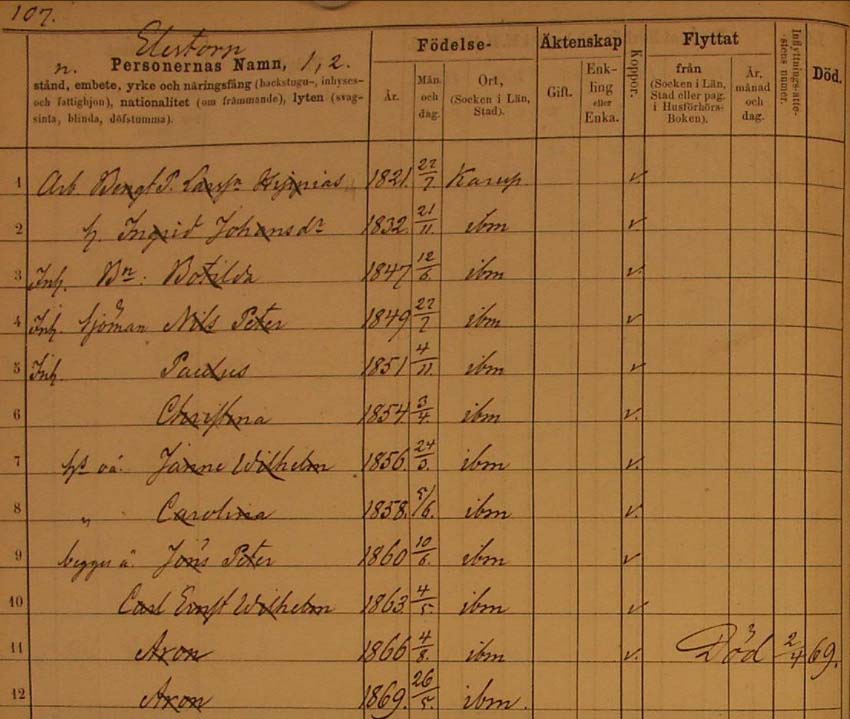 107.
Elestorp
n. Personernas Namn, 1, 2.
stånd, embete, yrke och näringsfång (backstugu-, inhyses-
och fattighjon), nationalitet (om främmande), lyten (svag-
sinta, blinda, döfstumma).
Födelse-
År.
Mån. och dag.
Ort,
(Socken i Län, Stad).
Äktenskap
Gift.
Enk-
ling
eller
Enka.
Koppor.
Flyttat
från
(Socken i Län,
Stad eller pag.
i Husförhörs-
Boken).
År,
månad
och
dag.
Inflyttnings-atte-
stens numer.
Död.
1 Arb Bengt P. Larss'n 1821. 22/7 Karup v.
2 h. Ingrid Johansdr 1832 21/11 ibm v.
3 Inh. Bn: Botilda 1847 12/6 ibm v.
4 Inh. Sjöman Nils Peter 1849 22/7 ibm v
5 Inh. Paulus 1851 4/11 ibm v
6 Christina 1854. 3/4. ibm v.
7 Janne Wilhelm 1856. 24/3. ibm v.
8 " Carolina 1858. 5/6. ibm v.
9 begges Jöns Peter 1860 10/6. ibm v
10 Carl Ernst Wilhelm 1863. 4/5. ibm v
11 Aron 1866 4/8. ibm v. Död 2/4 69.
12 Aron 1869. 26/5. ibm.